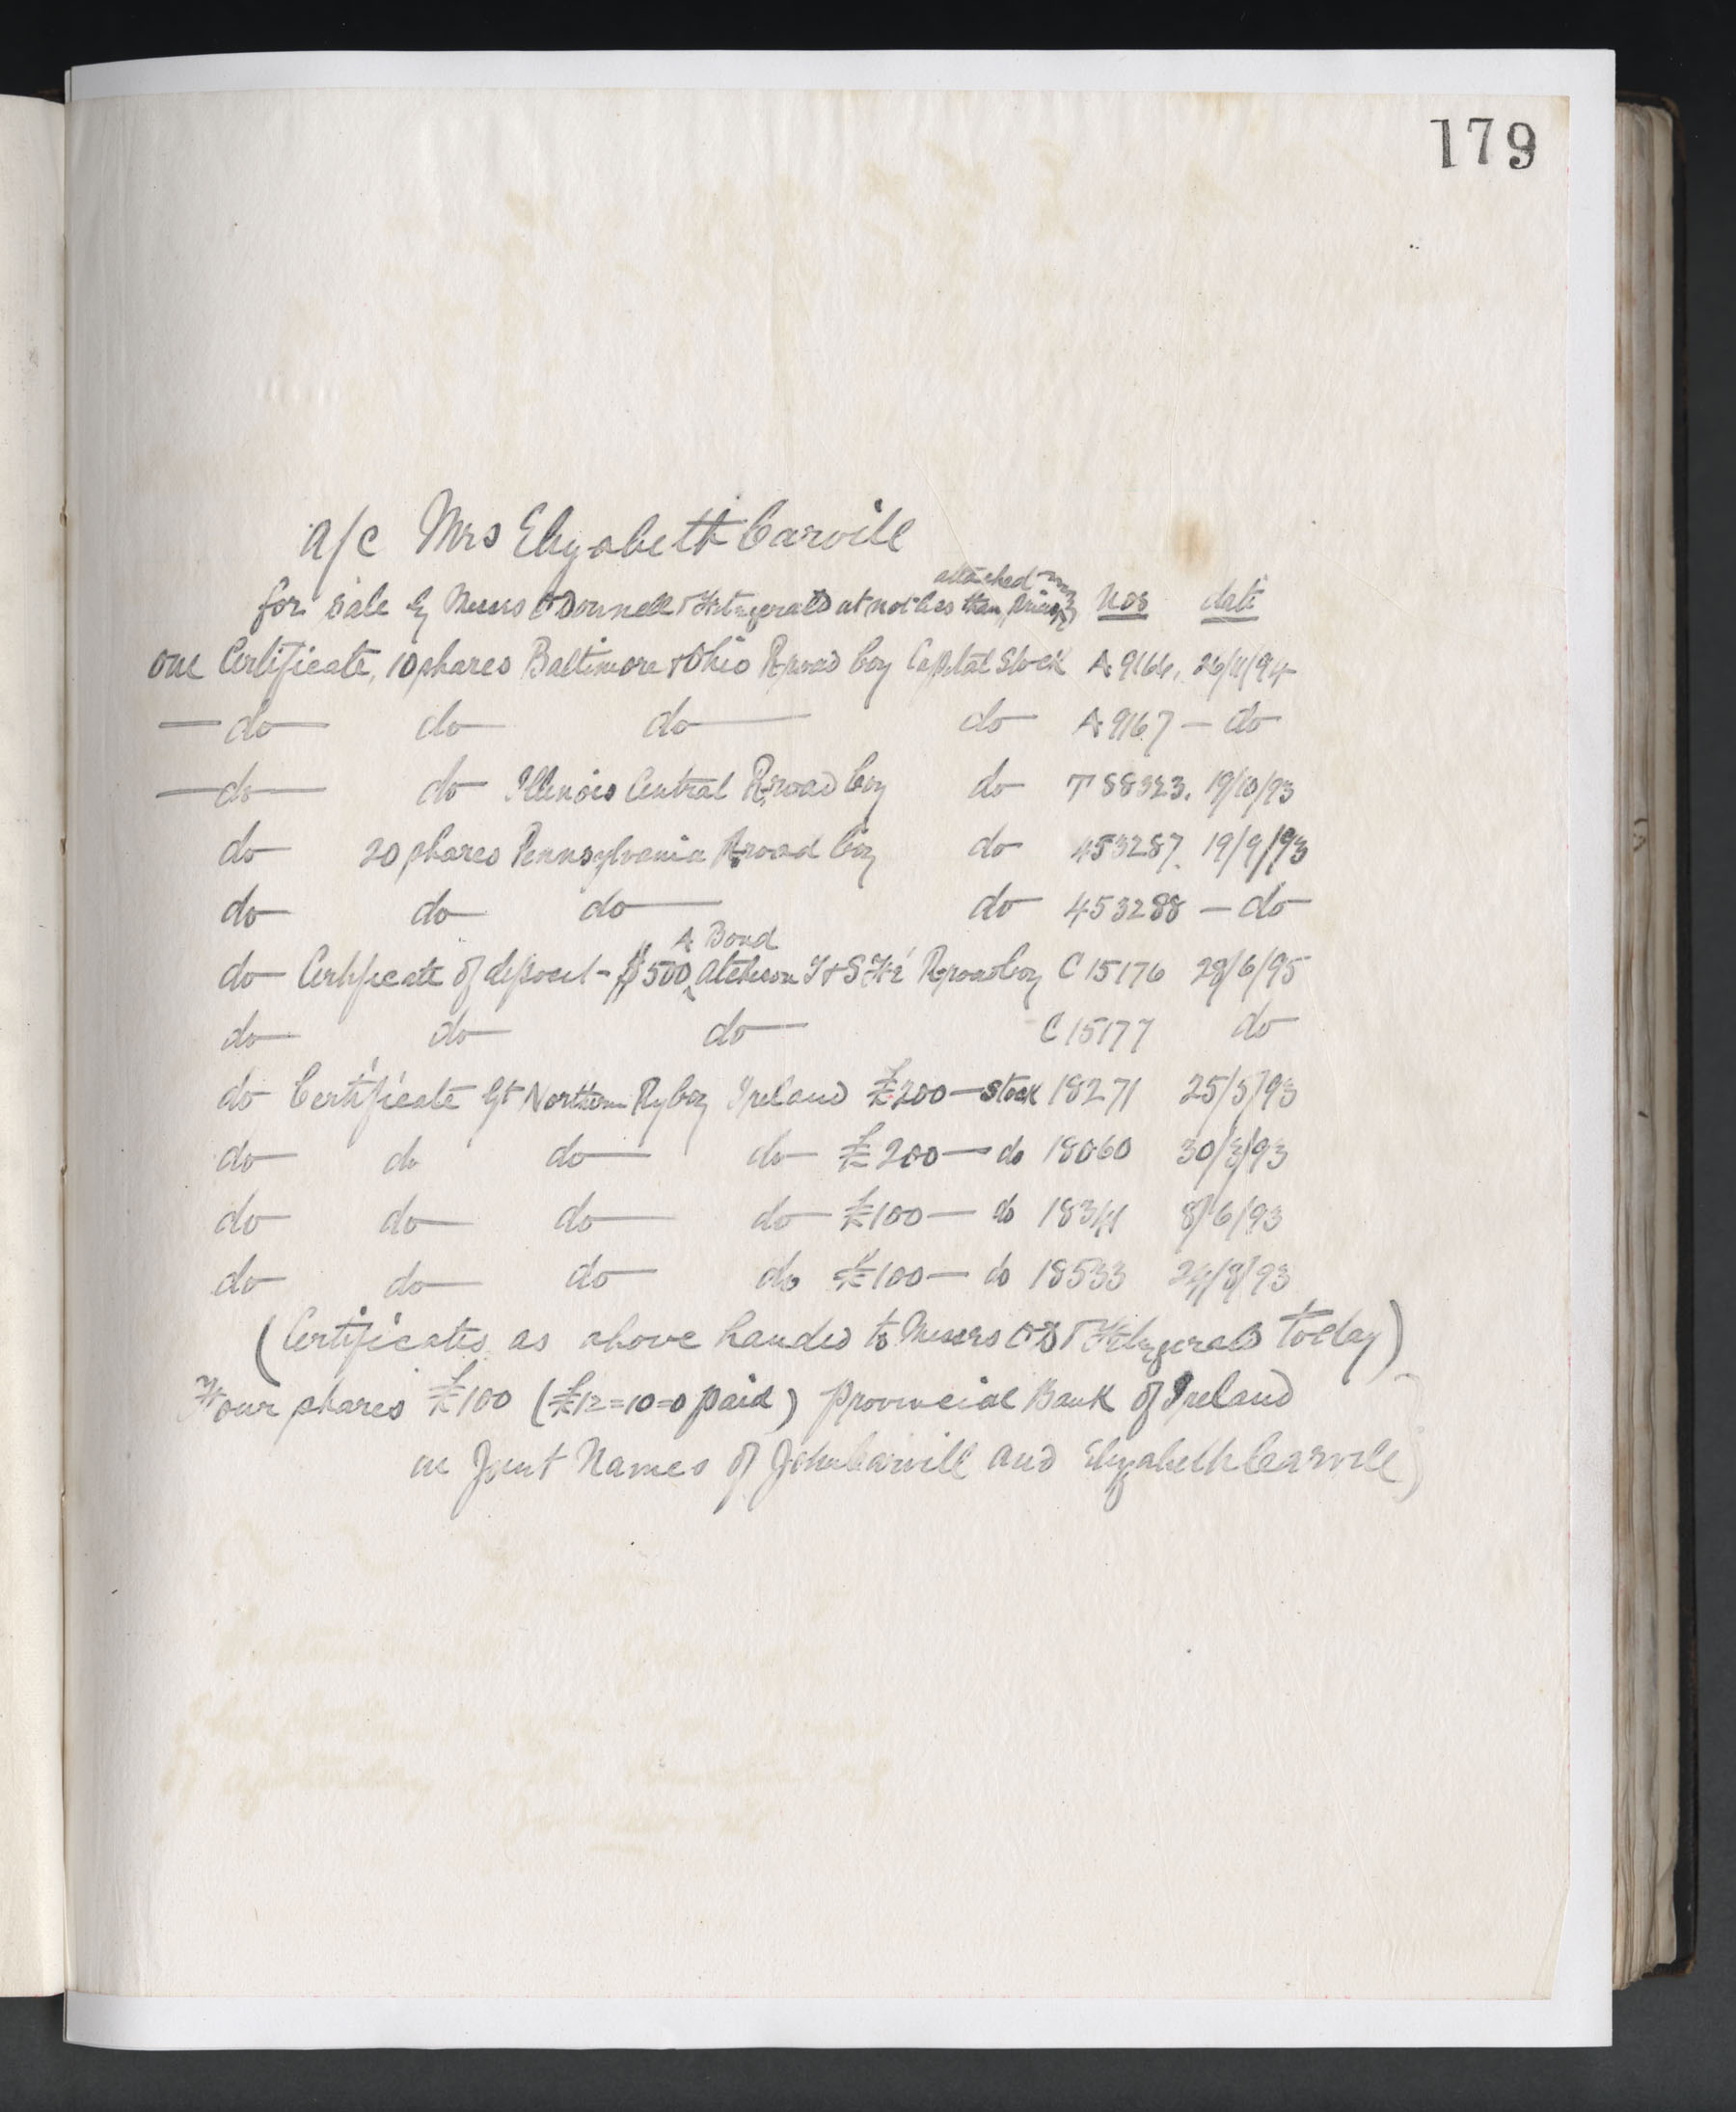 179
a/c Mrs Elizabeth Carvill
attached
for sale by Messrs O'Donnell & Fitzgerald at not less than prices Nos date
One Certificate, 10 shares Baltimore & Ohio Rroad Coy Capital Stock A 9166. 26/11/94
— do — do — do — do — A 9167 — do —
— do — do — Illinois Central Rroad Coy do — T 88323. 19/10/93
do — 20 shares Pennsylvania Rroad Coy do — 453287. 19/9/93
do — do — do — do — 453288 — do —
A Bond
do — Certificate of deposit - $500 Atcheson T & S Fé Rroad Coy C 15176 28/6/95
do — do — do — C 15177 do —
do Certificate Gt Northern Ry Coy Ireland £200 — stock 18271 25/5/93
do — do do — do — £200 — do 18060 30/3/93
do — do — do — do — £100 — do 18341 8/6/93
do — do — do — do £100 — do 18533 24/8/93
(Certificates as above handed to Messrs O'D & Fitzgerald today)
Four shares £100 (£12=10=0 paid) Provincial Bank of Ireland
in Joint Names of John Carvill and Elizabeth Carvill